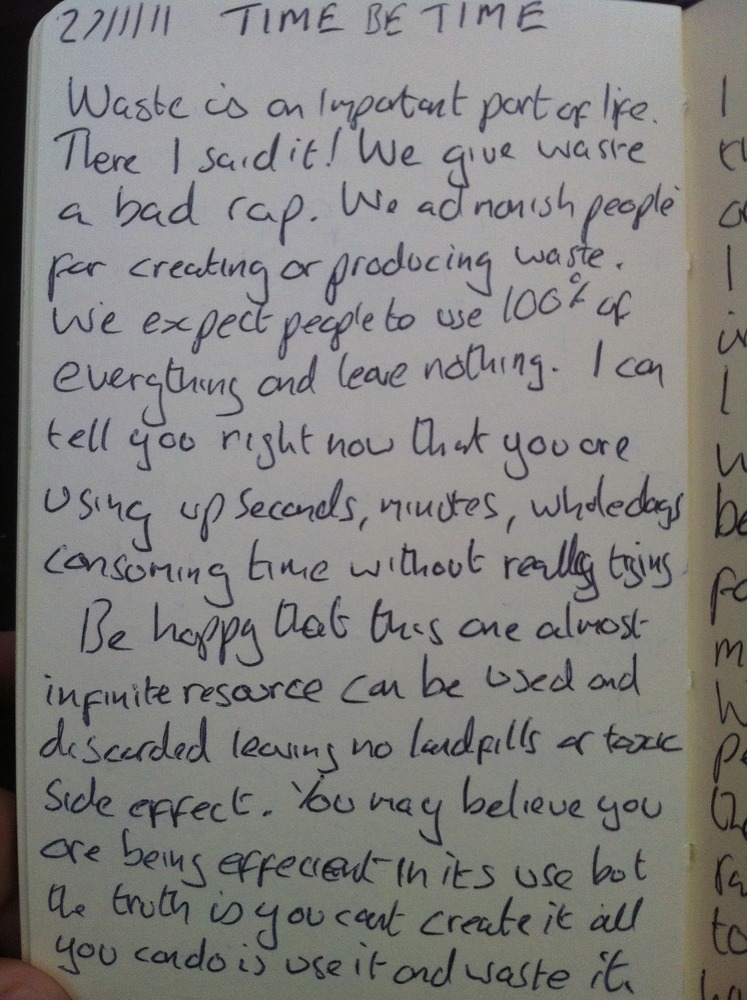 27/11/11 TIME BE TIME
Waste is an important part of life.
There I said it! We give waste
a bad rap. We admonish people
for creating or producing waste.
We expect people to use 100% of
everything and leave nothing. I can
tell you right now that you are
using up seconds, minutes, whole days
consuming time without really trying
Be happy that this one almost
infinite resource can be used and
discarded leaving no landfills or toxic
side effect. You may believe you
are being effecient in its use but
the truth is you cant create it all
you can do is use it and waste it.